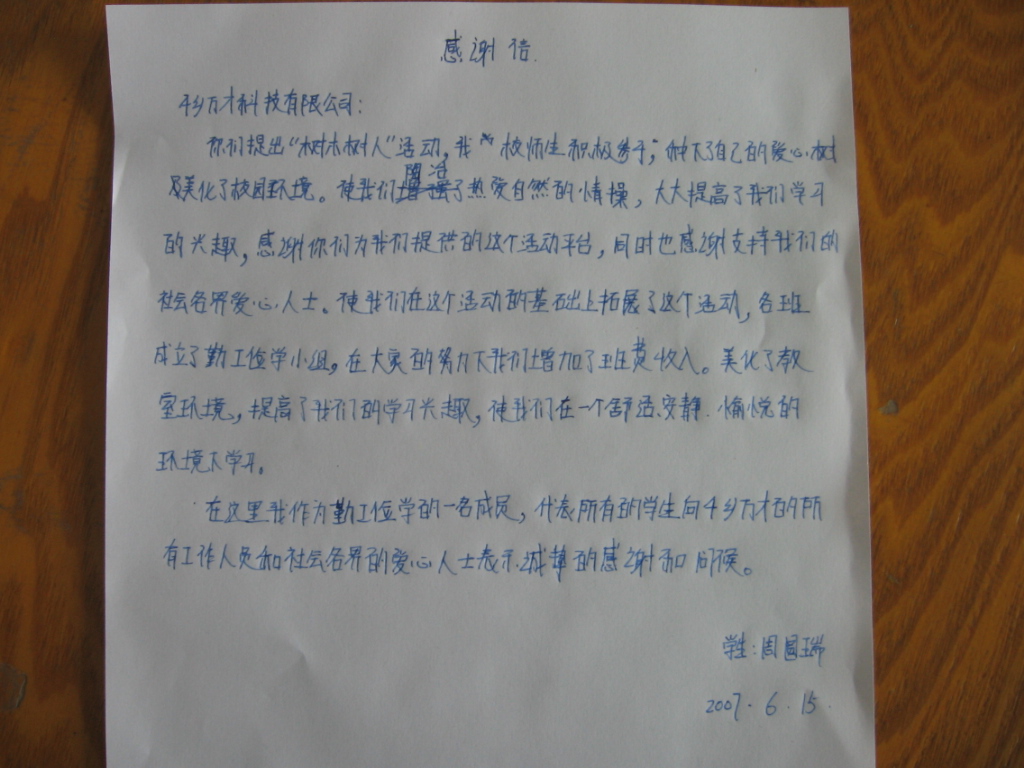 感谢信
4乡万才科技有限公司：
你们提出“树木树人”活动，我校师生积极参于，种下了自己的爱心树
及美化了校园环境。使我们陶冶了热爱自然的情操，大大提高了我们学习
的兴趣，感谢你们为我们提供的这个活动平台，同时也感谢支持我们的
社会各界爱心人士。使我们在这个活动的基础上拓展了这个活动，各班
成立了勤工俭学小组，在大家的努力下我们增加了班费收入。美化了教
室环境，提高了我们的学习兴趣，使我们在一个舒适、安静、愉悦的
环境下学习。
在这里我作为勤工俭学的一名成员，代表所有的学生向4乡万才的所
有工作人员和社会各界的爱心人士表示诚挚的感谢和问候。
学生：周国瑞
2007.6.15.